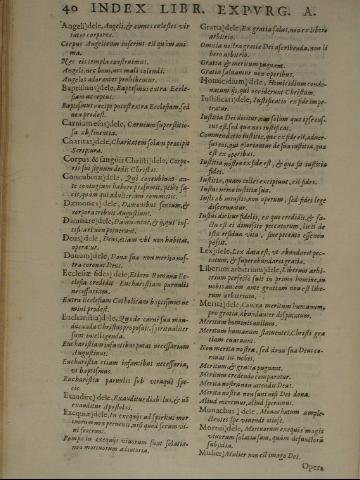 40 INDEX LIBR. EXPVRG. A.
Angeli) dele, Angeli, & omnes celestes vir
tutes corporeæ.
Corpus Angelicum inferius est quam ani-
ma.
Nec eis templa construimus.
Angeli, nec boni, nec mali videndi.
Angelos adorari prohibemur.
Baptismus) dele, Baptismus extra Eccle-
siam acceptus.
Baptismus accipi potest extra Ecclesiam, sed
non prodest.
Carnium esus) dele, Carnium superstitio-
sa abstinentia.
Charitas) dele, Charitatem solam præcipit
Scriptura.
Corpus & sanguis Christi) dele, Corpo-
ris sui signum dedit Christus.
Concubina) dele, Qui concubinam an-
te coniugium habere
Dæmones) dele, Dæmonibus sensum, &
corpora tribuit Augustinus.
Damnare) dele,
Deus) dele, Deus, etiam vbi non habitat,
operatur.
Donum) dele, Dona sua non merita no-
stra coronat Deus.
Ecclesiæ fides) dele, Etiam Romana Ec-
clesia credidit Eucharistiam paruulis
necessariam.
Extra Ecclesiam Catholicam baptismus ne
mini prodest.
Eucharistia) dele, Quod de carne sua man-
ducanda Christus proposuit, spiritualiter
sunt intelligenda.
Eucharistiam infantibus putat necessariam
Augustinus.
Eucharistia etiam infantibus necessaria,
vt baptismus.
Eucharistia paruulis sub vtraque spe-
cie.
Exaudire) dele, Exauditur diabolus, & nō
exauditur Apostolus.
Exequiæ) dele, In exequiis ad spiritus mor
tuorum non peruenit, nisi quod secum vi-
ui fecerunt.
Pompa in exequiis viuorum sunt solatia,
non mortuorum adiutoria.
Gratia) dele, Ex gratia salus, non ex libero
arbitrio.
Omnia nostra gratiæ Dei ascribenda, non li
bero arbitrio.
Gratia & meritum pugnant.
Gratia iustamur non operibus.
Homicidium) dele, Homicidium condi-
nantur ii, qui occiderunt Christum.
Iustificari) dele, Iustificatio ex fide impe-
tratur.
Iustitia Dei dicitur, non solum qua ipse iu-
stus est, sed qua nos iustificat.
Commendatio iustitiæ, quæ ex fide est, aduer-
sus eos, qui gloriantur de sua iustitia, quæ
est ex operibus.
Iustitia nostra ex fide est, & qua sit iustitia
fidei.
Iustitia, quam colles excipiunt, est fides.
Iustus nemo iustitia sua.
Iusti ab iniustis, non operum, sed fidei lege
discernuntur.
Iustus dicitur fidelis, eo quod credidit, & fa-
cta est ei dimissio peccatorum, licet de
ista residua vita, sine peccato esse non
possit.
Lex) dele, Lex data est, vt abundaret pec-
catum, & superabundaret gratia.
Liberum arbitrium) dele, Liberum arbi-
trium perfectè fuit in primo homine, in
nobis autem ante gratiam non est libe-
rum arbitrium.
Merita) dele, Contra meritum humanum,
pro gratia abundanter disputatum.
Meritum hominis nullum.
Meritum humanum statuentes, Christi gra
tiam euacuant.
Non merita nostra, sed dona sua Deus co-
ronat in nobis.
Meritum, & gratia pugnant.
Meritum credendo comparatur.
Merita nostra non attendit Deus.
Merita nostra non sunt nisi Dei dona.
Aliud meremur, aliud speramus.
Monachus) dele, Monachatum ample-
ctentes spe viuendi otiosè.
Mortui) dele, Mortuorum exequiæ magis
viuorum solatia sunt, quàm defunctorū
subsidia.
Mulier) Mulier non est imago Dei.
Opera